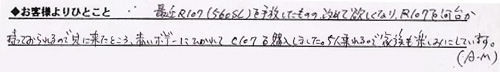 ◆お客様よりひとこと ∴ 最近R107(560SL)を手放したものの、改めて欲しくなり、R107を何台か
持っておられるので見に来たところ、赤いボディーにひかれてC107を購入しました。5人乗れるので家族も楽しみにしています。
(A・M)